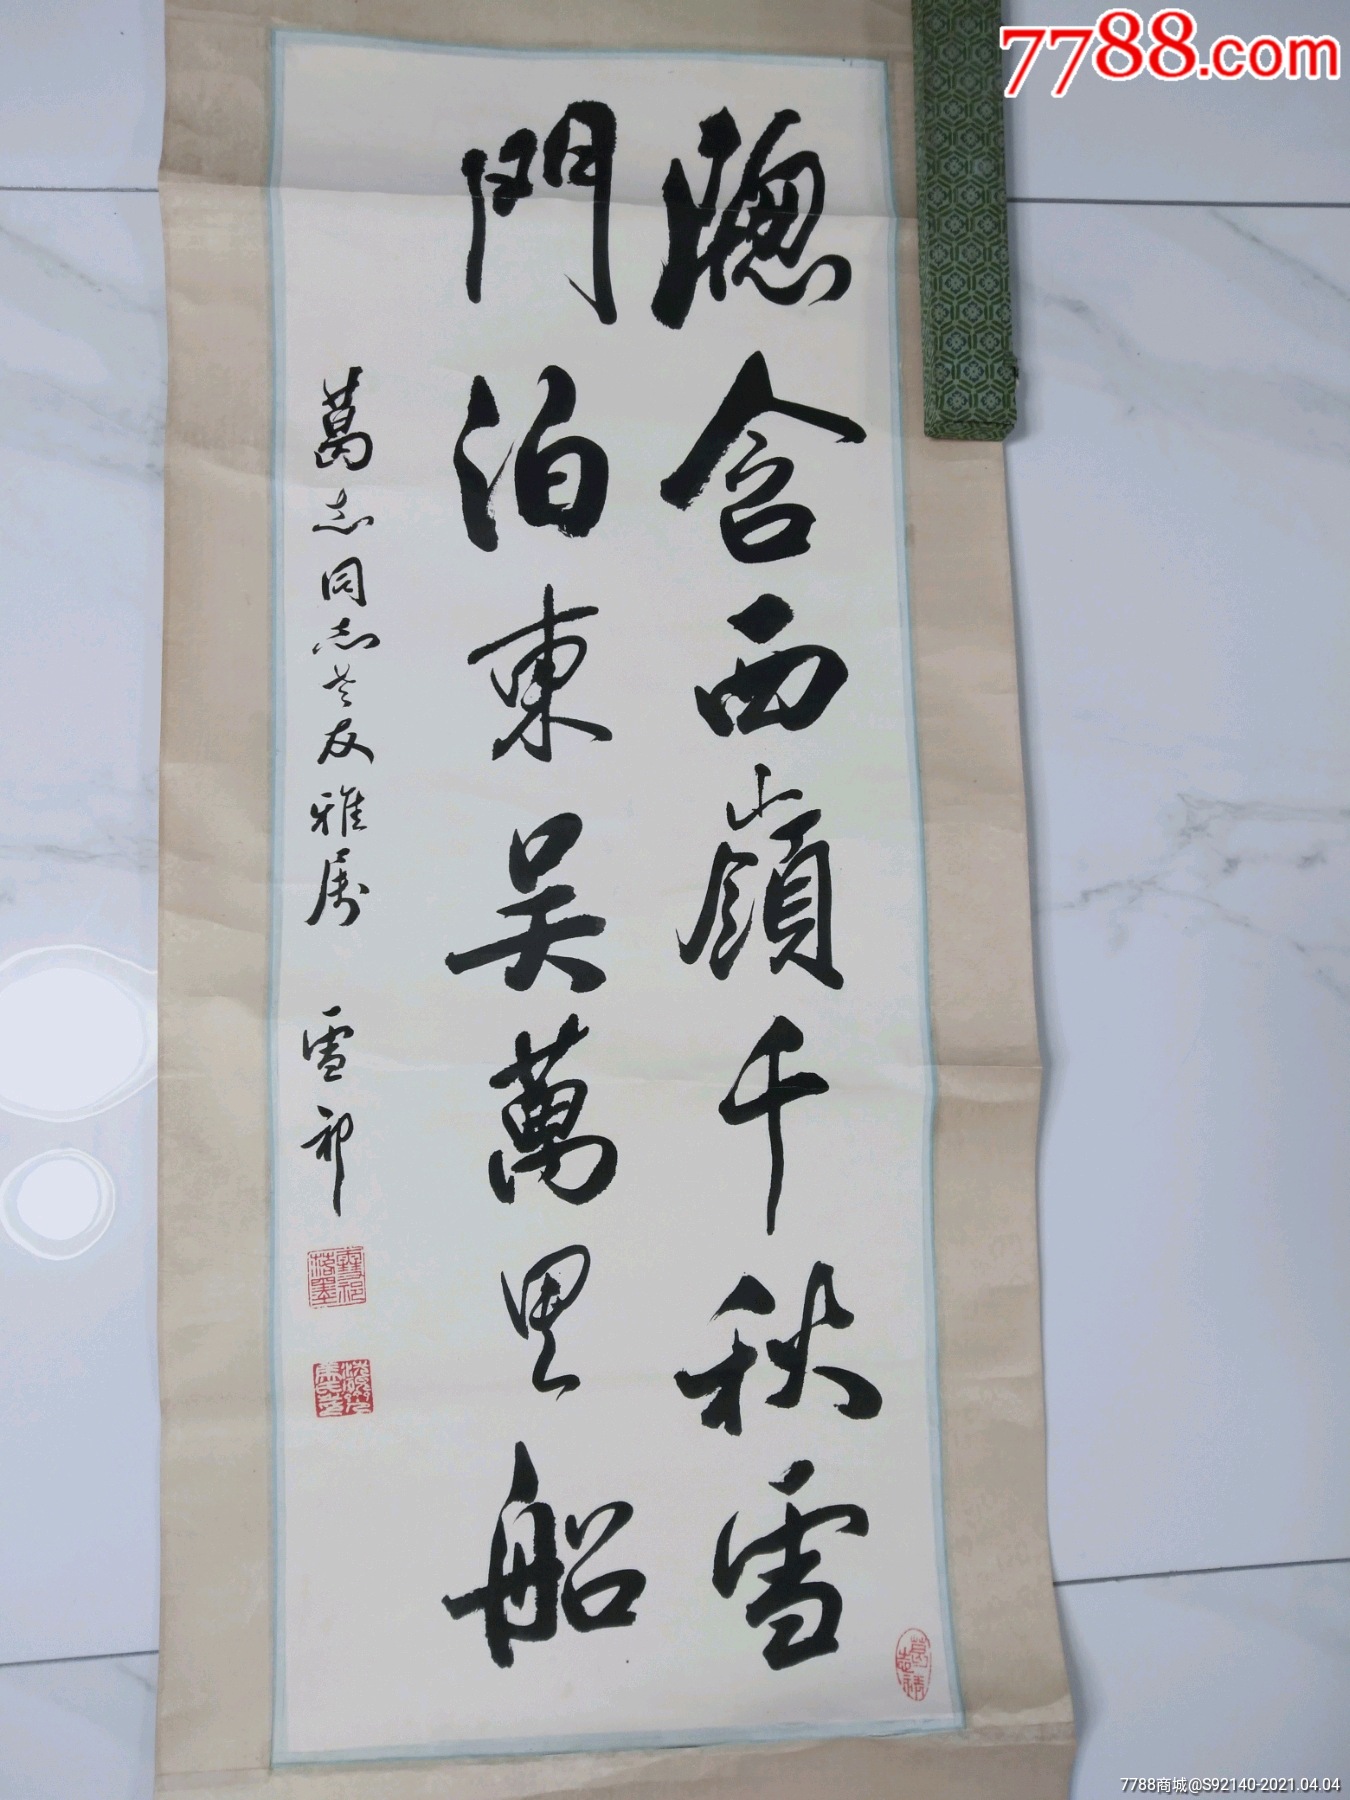 牕含西嶺千秋雪
門泊東吴萬里船
葛志同志老友雅属
雪祁
雪祁落墨
7788.com
7788商城@S92140-2021.04.04